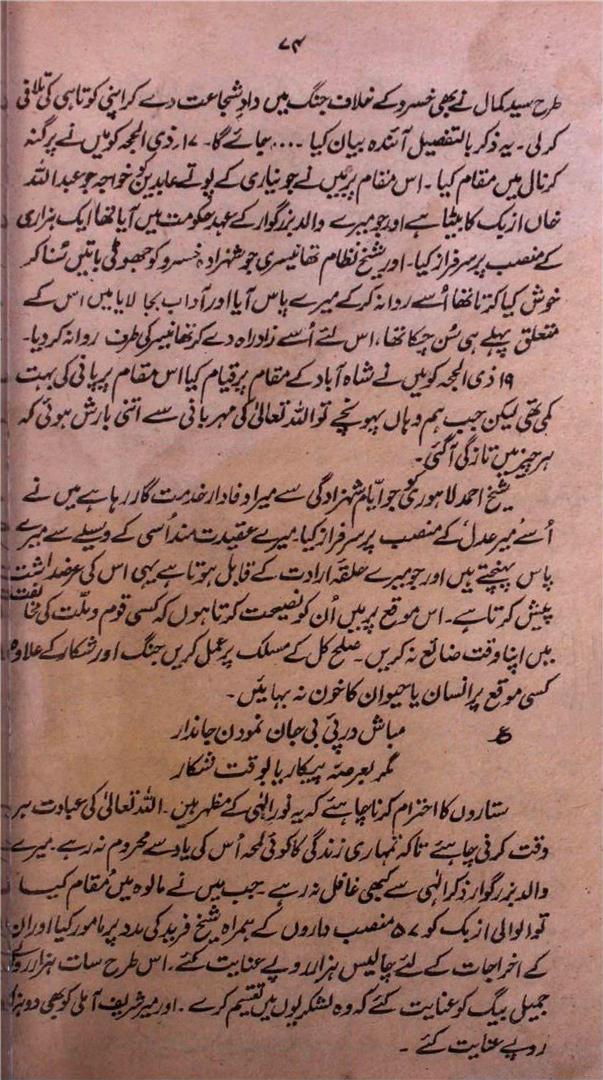 ۷۴
طرح سید کمال نے بھی خسرو کے خلاف جنگ میں دادِ شجاعت دے کر اپنی کوتاہی کی تلافی
کر لی۔ یہ ذکر بالتفصیل آئندہ بیان کیا .... جائے گا۔ ۱۷۔ ذی الحجہ کو میں نے پرگنہ
کرنال میں مقام کیا۔ اس مقام پر میں نے جونیاری کے پوتے عابدین کو خواجہ جو عبد اللہ
خاں ازبک کا بیٹا ہے اور جو میرے والد بزرگوار کے عہد حکومت میں آیا تھا ایک ہزاری
کے منصب پر سرفراز کیا۔ اور شیخ نظام تھانیسری جو شہزادہ خسرو کو جھوٹی باتیں سنا کر
خوش کیا کرتا تھا اُسے روانہ کر کے میرے پاس آیا اور آداب بجا لایا میں اس کے
متعلق پہلے ہی سُن چکا تھا، اس لئے اُسے زادِ راہ دے کر تھانیسر کی طرف روانہ کر دیا۔
۱۹ ذی الحجہ کو میں نے شاہ آباد کے مقام پر قیام کیا اس مقام پر پانی کی بہت
کمی تھی لیکن جب ہم وہاں پہونچے تو اللہ تعالیٰ کی مہربانی سے اتنی بارش ہوئی کہ
ہر چیز میں تازگی آ گئی۔
شیخ احمد لاہوری کو جو ایام شہزادگی سے میرا وفادار خدمت گار رہا ہے میں نے
اُسے میر عدل کے منصب پر سرفراز کیا۔ میرے عقیدت مند اُسی کے وسیلے سے میرے
پاس پہنچتے ہیں اور جو میرے حلقۂ ارادت کے قابل ہوتا ہے یہی اس کی عرضداشت
پیش کرتا ہے۔ اس موقع پر میں اُن کو نصیحت کرتا ہوں کہ کسی قوم و ملّت کی مخالفت
میں اپنا وقت ضائع نہ کریں۔ صلح کل کے مسلک پر عمل کریں جنگ اور شکار کے علاوہ
کسی موقع پر انسان یا حیوان کا خون نہ بہائیں۔
ع مباش در پئی بی جان نمودن جاندار
مگر بعرصۂ پیکار یا بوقت شکار
ستاروں کا احترام کرنا چاہئے کہ یہ نورِ الٰہی کے مظہر ہیں۔ اللہ تعالیٰ کی عبادت ہر
وقت کرنی چاہئے تاکہ تمہاری زندگی کا کوئی لمحہ اُس کی یاد سے محروم نہ رہے میرے
والد بزرگوار ذکر الٰہی سے کبھی غافل نہ رہے۔ جب میں نے مالوہ میں مقام کیا
تو ابوالی ازبک کو ۵۷ منصب داروں کے ہمراہ شیخ فرید کی مدد پر مامور کیا اور ان
کے اخراجات کے لئے چالیس ہزار روپے عنایت کئے۔ اس طرح سات ہزار
جمیل بیگ کو عنایت کئے کہ وہ لشکریوں میں تقسیم کرے۔ اور میر شریف آملی کو بھی دو ہزار
روپے عنایت کئے۔